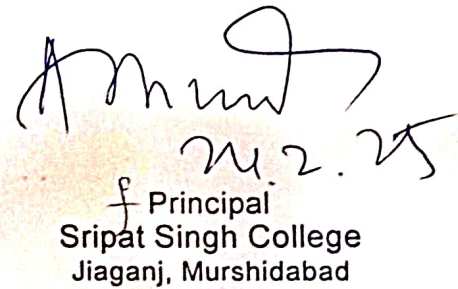 24.2.25
f Principal
Sripat Singh College
Jiaganj, Murshidabad